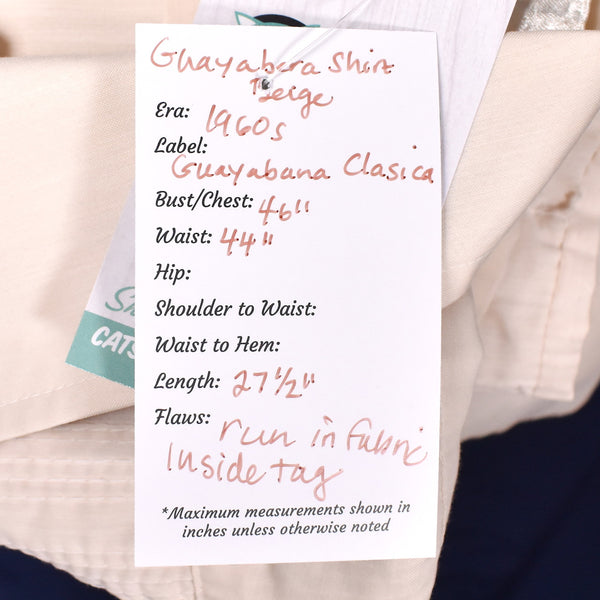 Guayabera Shirt
Beige
Era: 1960s
Label:
Guayabana Clasica
Bust/Chest: 46"
Waist: 44"
Hip:
Shoulder to Waist:
Waist to Hem:
Length: 27 1/2"
Flaws: run in fabric
Inside tag
*Maximum measurements shown in
inches unless otherwise noted
Sh
CATS